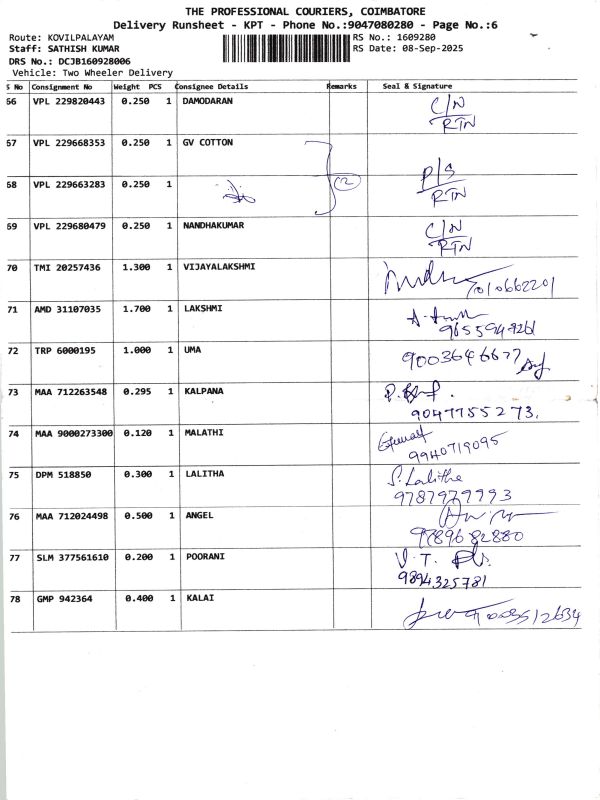 THE PROFESSIONAL COURIERS, COIMBATORE
Delivery Runsheet - KPT - Phone No.:9047080280 - Page No.:6
Route: KOVILPALAYAM RS No.: 1609280
Staff: SATHISH KUMAR RS Date: 08-Sep-2025
DRS No.: DCJB160928006
Vehicle: Two Wheeler Delivery
S No Consignment No Weight PCS Consignee Details Remarks Seal & Signature
66 VPL 229820443 0.250 1 DAMODARAN C/N
RTN
67 VPL 229668353 0.250 1 GV COTTON
68 VPL 229663283 0.250 1 (2) D/S
RTN
69 VPL 229680479 0.250 1 NANDHAKUMAR C/N
RTN
70 TMI 20257436 1.300 1 VIJAYALAKSHMI
7010662201
71 AMD 31107035 1.700 1 LAKSHMI
9655949261
72 TRP 6000195 1.000 1 UMA 9003646677
73 MAA 712263548 0.295 1 KALPANA
9047755273.
74 MAA 9000273300 0.120 1 MALATHI
9940719095
75 DPM 518850 0.300 1 LALITHA S. Lalitha
9787979993
76 MAA 712024498 0.500 1 ANGEL
9789682880
77 SLM 377561610 0.200 1 POORANI V. T.
9894325781
78 GMP 942364 0.400 1 KALAI
9003512634